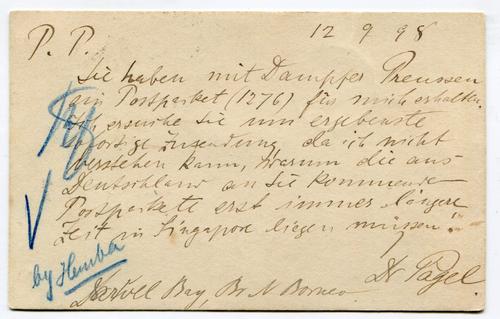 P. P.
12 9 98
Sie haben mit Dampfer Preussen
ein Postpacket (1276) für mich erhalten.
Ich ersuche Sie um ergebenste
sofortige Zusendung, da ich nicht
verstehen kann, warum die aus
Deutschland an Sie kommende
Postpackete erst immer längere
Zeit in Singapore liegen müssen!
Dr Pagel.
Darvel Bay, Br. N Borneo
by Hemba